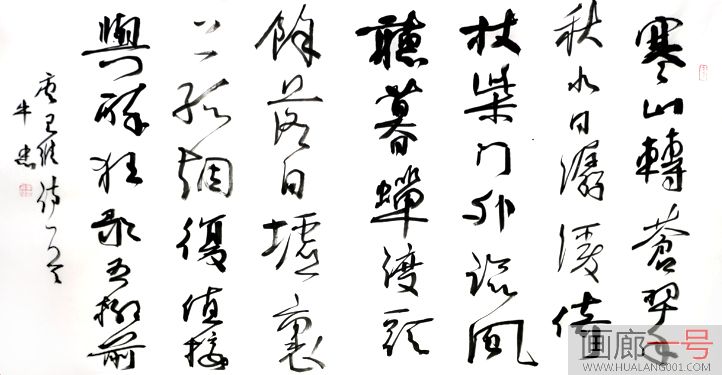 寒山轉蒼翠
秋水日潺湲倚
杖柴門外臨風
聽暮蟬渡頭
餘落日墟裏
上孤烟復值接
輿醉狂歌五柳前
唐王維詩一首
牛忠
画廊一号
WWW.HUALANG001.COM